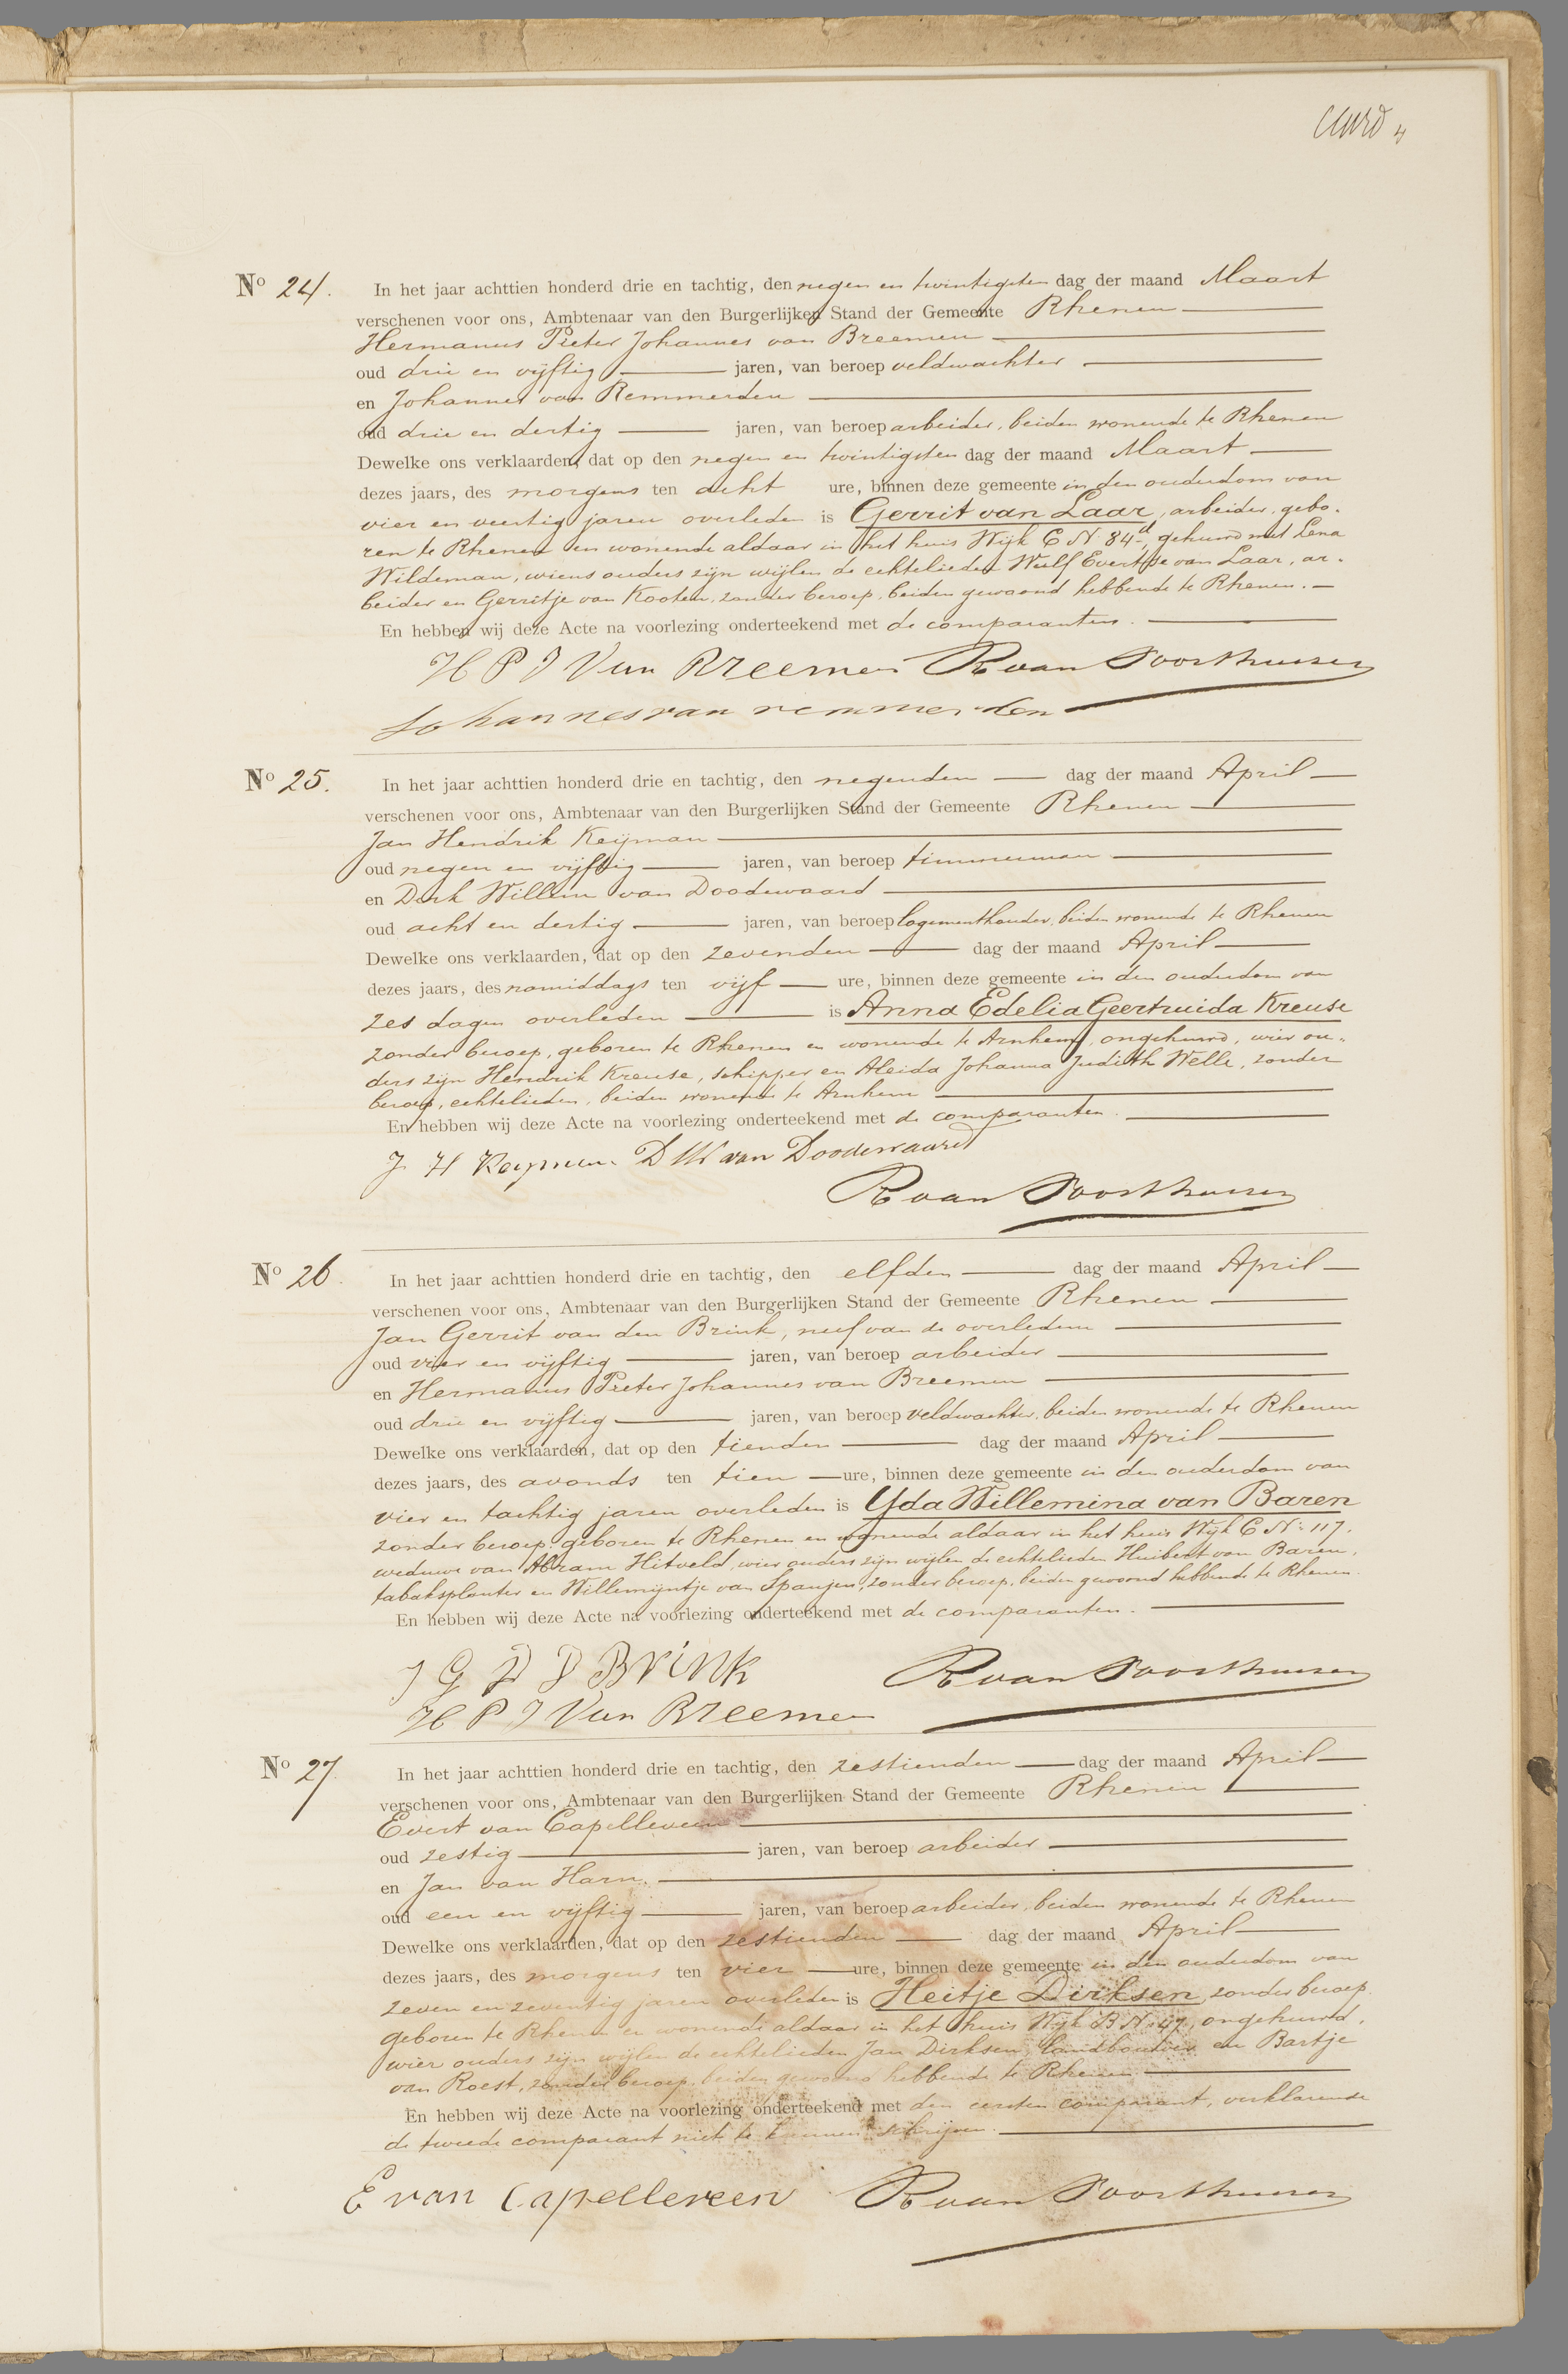 No 24.
In het jaar achttien honderd drie en tachtig, den negen en twintigsten dag der maand Maart
verschenen voor ons, Ambtenaar van den Burgerlijken Stand der Gemeente Rhenen
Hermanus Pieter Johannes van Breemen
oud drie en vijftig jaren, van beroep veldwachter
en Johannes van Remmerden
oud drie en dertig jaren, van beroep arbeider, beiden wonende te Rhenen
Dewelke ons verklaarden, dat op den negen en twintigsten dag der maand Maart
dezes jaars, des morgens ten acht ure, binnen deze gemeente in den ouderdom van
vier en veertig jaren overleden is Gerrit van Laar, arbeider, gebo-
ren te Rhenen en wonende aldaar in het huis Wijk C No 84d, gehuwd met Lena
Wildeman, wiens ouders zijn wijlen de echtelieden Wulf Evertse van Laar, ar-
beider en Gerritje van Kooten, zonder beroep, beiden gewoond hebbende te Rhenen.
En hebben wij deze Acte na voorlezing onderteekend met de comparanten.
H P J Van Breemen R van Voorthuisen
Johannes van remmerden
No 25.
In het jaar achttien honderd drie en tachtig, den negenden dag der maand April
verschenen voor ons, Ambtenaar van den Burgerlijken Stand der Gemeente Rhenen
Jan Hendrik Keijman
oud negen en vijftig jaren, van beroep timmerman
en Dirk Willem van Doodewaard
oud acht en dertig jaren, van beroep logementhouder, beiden wonende te Rhenen
Dewelke ons verklaarden, dat op den zevenden dag der maand April
dezes jaars, des namiddags ten vijf ure, binnen deze gemeente in den ouderdom van
zes dagen overleden is Anna Edelia Geertruida Kreuse
zonder beroep, geboren te Rhenen en wonende te Arnhem, ongehuwd, wier ou-
ders zijn Hendrik Kreuse, schipper en Aleida Johanna Judith Welle, zonder
beroep, echtelieden, beiden wonende te Arnhem
En hebben wij deze Acte na voorlezing onderteekend met de comparanten.
J H Keyman D W van Doodewaard
R van Voorthuisen
No 26.
In het jaar achttien honderd drie en tachtig, den elfden dag der maand April
verschenen voor ons, Ambtenaar van den Burgerlijken Stand der Gemeente Rhenen
Jan Gerrit van den Brink, neef van de overledene
oud vier en vijftig jaren, van beroep arbeider
en Hermanus Pieter Johannes van Breemen
oud drie en vijftig jaren, van beroep veldwachter, beiden wonende te Rhenen
Dewelke ons verklaarden, dat op den tienden dag der maand April
dezes jaars, des avonds ten tien ure, binnen deze gemeente in den ouderdom van
vier en tachtig jaren overleden is Yda Willemina van Baren
zonder beroep, geboren te Rhenen en wonende aldaar in het huis Wijk C No 117,
weduwe van Abram Hitveld, wier ouders zijn wijlen de echtelieden Huibert van Baren,
tabaksplanter en Willemijntje van Spanjen, zonder beroep, beiden gewoond hebbende te Rhenen.
En hebben wij deze Acte na voorlezing onderteekend met de comparanten.
J G v d Brink R van Voorthuisen
H P J Van Breemen
No 27.
In het jaar achttien honderd drie en tachtig, den zestienden dag der maand April
verschenen voor ons, Ambtenaar van den Burgerlijken Stand der Gemeente Rhenen
Evert van Capelleveen
oud zestig jaren, van beroep arbeider
en Jan van Harn
oud een en vijftig jaren, van beroep arbeider, beiden wonende te Rhenen
Dewelke ons verklaarden, dat op den zestienden dag der maand April
dezes jaars, des morgens ten vier ure, binnen deze gemeente in den ouderdom van
zeven en zeventig jaren overleden is Heitje Dirksen, zonder beroep,
geboren te Rhenen en wonende aldaar in het huis Wijk B No 47, ongehuwd,
wier ouders zijn wijlen de echtelieden Jan Dirksen, landbouwer en Bartje
van Roest, zonder beroep, beiden gewoond hebbende te Rhenen.
En hebben wij deze Acte na voorlezing onderteekend met den eersten comparant, verklarende
de tweede comparant niet te kunnen schrijven.
E van Capelleveen R van Voorthuisen